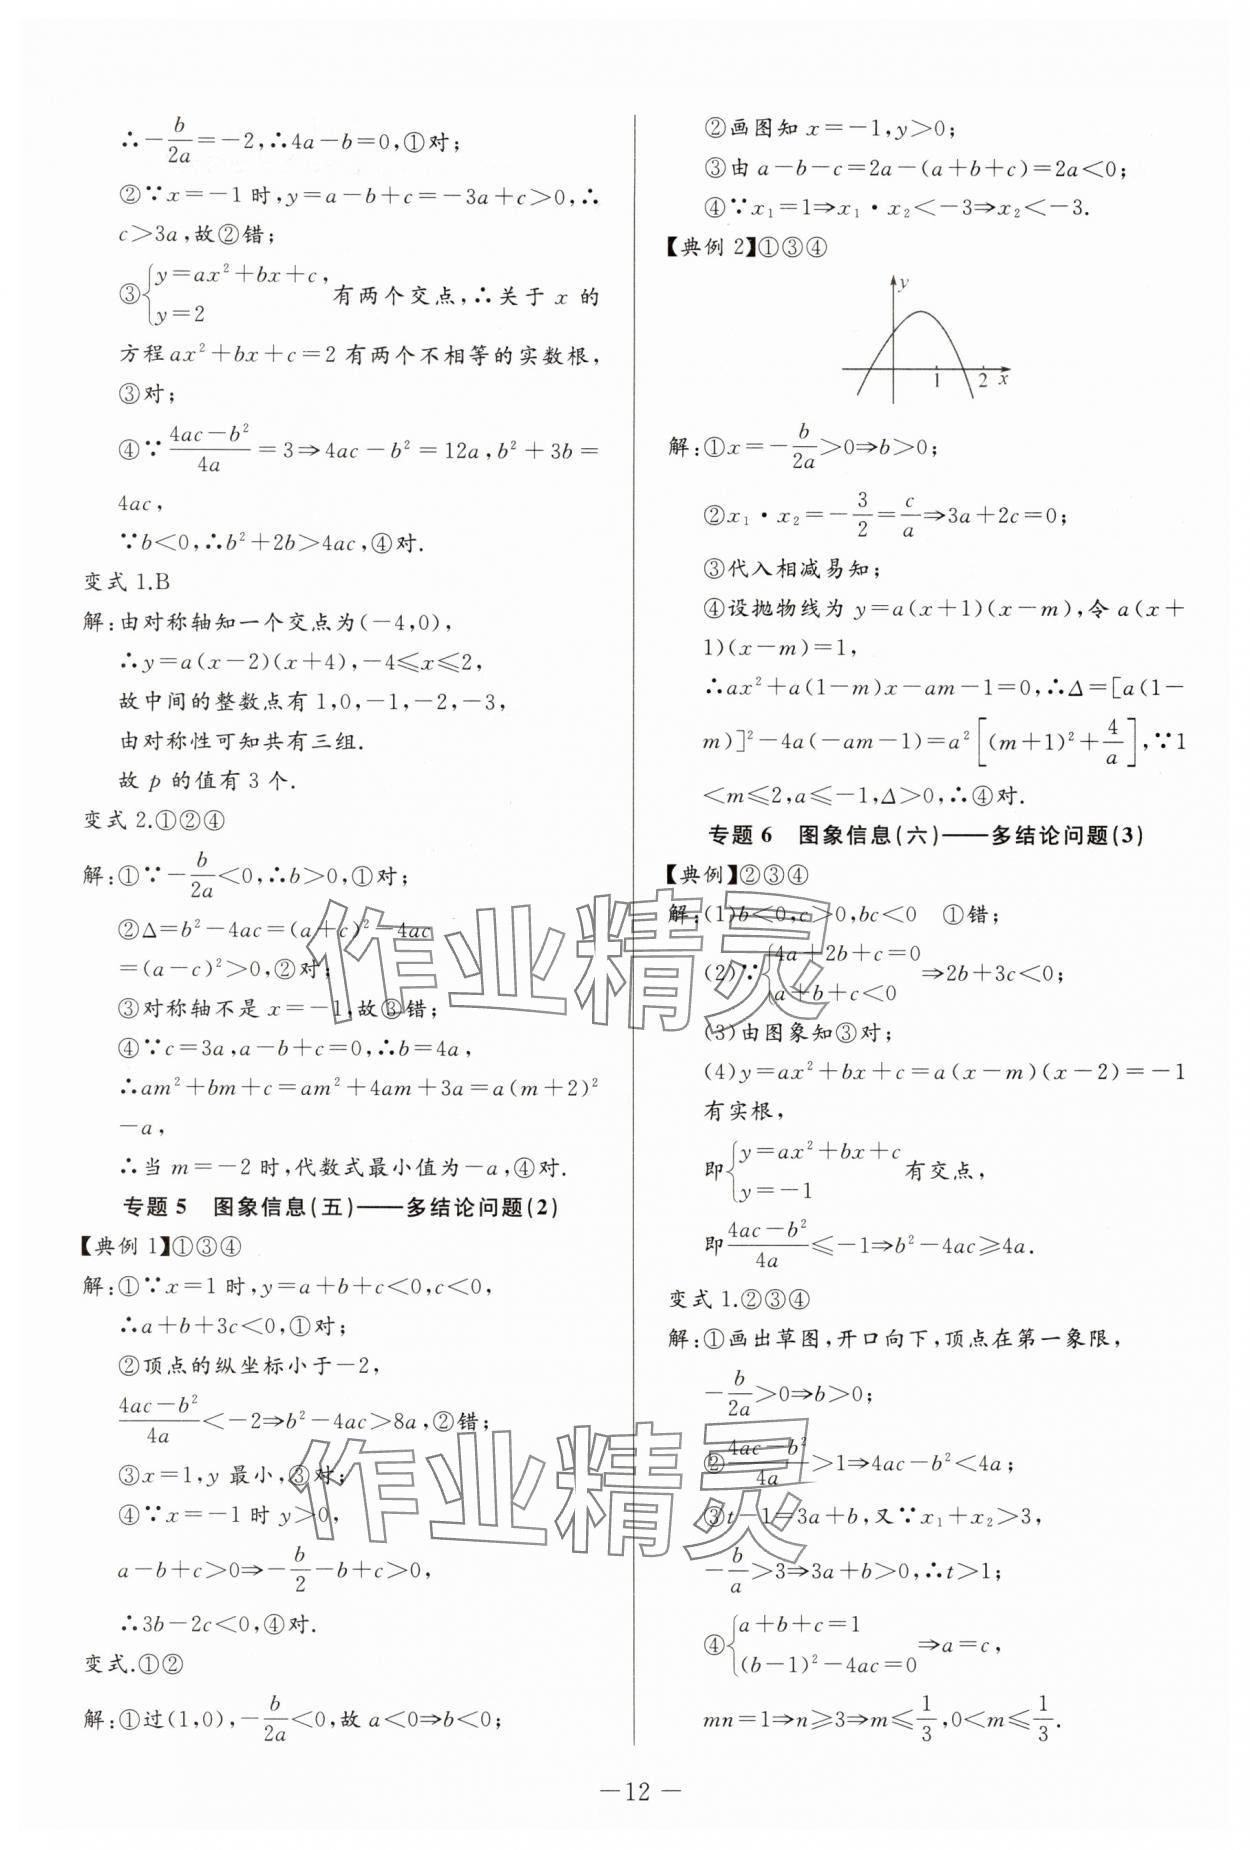 ∴-b/2a=-2,∴4a-b=0,①对;
②∵x=-1时,y=a-b+c=-3a+c>0,∴
c>3a,故②错;
③{y=ax²+bx+c, y=2 有两个交点,∴关于x的
方程ax²+bx+c=2有两个不相等的实数根,
③对;
④∵(4ac-b²)/4a=3⇒4ac-b²=12a,b²+3b=
4ac,
∵b<0,∴b²+2b>4ac,④对.
变式1.B
解:由对称轴知一个交点为(-4,0),
∴y=a(x-2)(x+4),-4⩽x⩽2,
故中间的整数点有1,0,-1,-2,-3,
由对称性可知共有三组.
故p的值有3个.
变式2.①②④
解:①∵-b/2a<0,∴b>0,①对;
②Δ=b²-4ac=(a+c)²-4ac
=(a-c)²>0,②对;
③对称轴不是x=-1,故③错;
④∵c=3a,a-b+c=0,∴b=4a,
∴am²+bm+c=am²+4am+3a=a(m+2)²
-a,
∴当m=-2时,代数式最小值为-a,④对.
专题5 图象信息(五)——多结论问题(2)
【典例1】①③④
解:①∵x=1时,y=a+b+c<0,c<0,
∴a+b+3c<0,①对;
②顶点的纵坐标小于-2,
(4ac-b²)/4a<-2⇒b²-4ac>8a,②错;
③x=1,y最小,③对;
④∵x=-1时y>0,
a-b+c>0⇒-b/2-b+c>0,
∴3b-2c<0,④对.
变式.①②
解:①过(1,0),-b/2a<0,故a<0⇒b<0;
②画图知x=-1,y>0;
③由a-b-c=2a-(a+b+c)=2a<0;
④∵x₁=1⇒x₁·x₂<-3⇒x₂<-3.
【典例2】①③④
y
1 2 x
解:①x=-b/2a>0⇒b>0;
②x₁·x₂=-3/2=c/a⇒3a+2c=0;
③代入相减易知;
④设抛物线为y=a(x+1)(x-m),令a(x+
1)(x-m)=1,
∴ax²+a(1-m)x-am-1=0,∴Δ=[a(1-
m)]²-4a(-am-1)=a²[(m+1)²+4/a],∵1
<m⩽2,a⩽-1,Δ>0,∴④对.
专题6 图象信息(六)——多结论问题(3)
【典例】②③④
解:(1)b<0,c>0,bc<0 ①错;
(2)∵{4a+2b+c=0 a+b+c<0 ⇒2b+3c<0;
(3)由图象知③对;
(4)y=ax²+bx+c=a(x-m)(x-2)=-1
有实根,
即{y=ax²+bx+c y=-1 有交点,
即(4ac-b²)/4a⩽-1⇒b²-4ac⩾4a.
变式1.②③④
解:①画出草图,开口向下,顶点在第一象限,
-b/2a>0⇒b>0;
②(4ac-b²)/4a>1⇒4ac-b²<4a;
③t-1=3a+b,又∵x₁+x₂>3,
-b/a>3⇒3a+b>0,∴t>1;
④{a+b+c=1 (b-1)²-4ac=0 ⇒a=c,
mn=1⇒n⩾3⇒m⩽1/3,0<m⩽1/3.
作业精灵
作业精灵
—12—